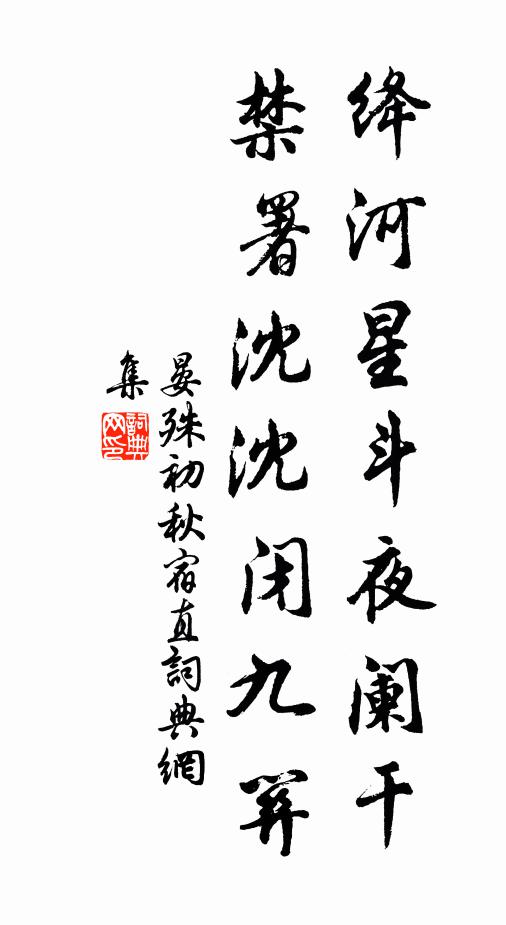 绛河星斗夜澜干
禁署沈沈闭九关
晏殊初秋宿直詞典網
集
詞典网印